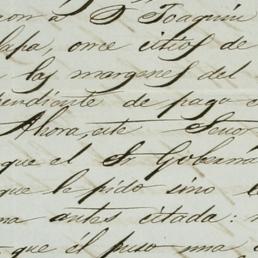 con á D. Joaquin
lapa, once sitios de
las margenes del
pendiente de pago
Ahora, este Señor
que el Sr Goberna
que le pido sino
ma antes citada:
que él puso una